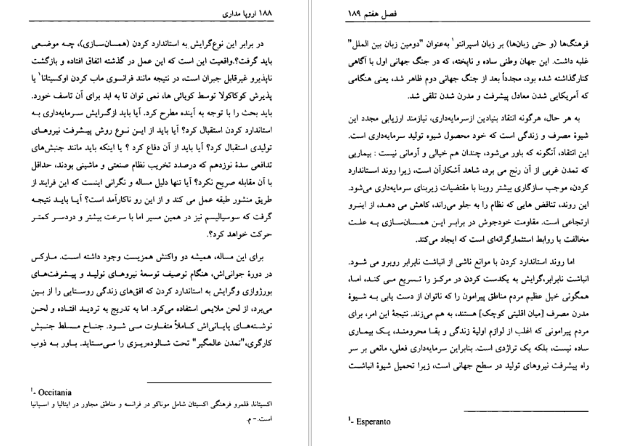 ۱۸۸ اروپا مداری
در برابر این نوع‌گرایش به استاندارد کردن (همسان‌سازی)، چه موضعی
باید گرفت؟.واقعیت این است که این عمل در گذشته اتفاق افتاده و بازگشت
ناپذیرو غیرقابل جبران است، در نتیجه مانند فرانسوی ماب کردن اوکسیتانا¹ یا
پذیرش کوکاکولا توسط کوپائی ها، نمی توان تا به ابد برای آن تاسف خورد.
باید بحث را با توجه به آینده مطرح کرد. آیا باید ازگرایش سرمایه‌داری به
استاندارد کردن استقبال کرد؟ آیا باید از این نوع روش پیشرفت نیروهای
تولیدی استقبال کرد؟ آیا باید از آن دفاع کرد ؟ یا اینکه باید مانند جنبش‌های
تدافعی سدهٔ نوزدهم که درصدد تخریب نظام صنعتی و ماشینی بودند، حداقل
با آن مقابله صریح نکرد؟ آیا تنها دلیل مساله و نگرانی اینست که این فرایند از
طریق منشور طبقه عمل می کند و از این رو ناکارآمد است؟ آیا باید نتیجه
گرفت که سوسیالیسم نیز در همین مسیر اما با سرعت بیشتر و دردسر کمتر
حرکت خواهد کرد؟.
برای این مساله، همیشه دو واکنش همزیست وجود داشته است. مارکس
در دورهٔ جوانی‌اش، هنگام توصیف توسعهٔ نیروهای تولید و پیشرفت‌های
بورژوازی وگرایش به استاندارد کردن که افق‌های زندگی روستایی را از بین
می‌برد، از لحن ملایمی استفاده می‌کرد. اما به تدریج به تردید افتاده و لحن
نوشته‌های پایانی‌اش کاملاً متفاوت می شود. جناح مسلط جنبش
کارگری،"تمدن عالمگیر" تحت شالوده‌ریزی را می‌ستاید. باور به ذوب
¹- Occitania
اکسیتانا، قلمرو فرهنگی اکسیتان شامل موناکو در فرانسه و مناطق مجاور در ایتالیا و اسپانیا
است. - م.
فصل هفتم ۱۸۹
فرهنگ‌ها (و حتی زبان‌ها) بر زبان اسپرانتو¹ به‌عنوان "دومین زبان بین الملل"
غلبه داشت. این جهان وطنی ساده و ناپخته، که در جنگ جهانی اول با آگاهی
کنارگذاشته شده بود، مجدداً بعد از جنگ جهانی دوم ظاهر شد، یعنی هنگامی
که آمریکایی شدن معادل پیشرفت و مدرن شدن تلقی شد.
به هر حال، هرگونه انتقاد بنیادین ازسرمایه‌داری، نیازمند ارزیابی مجدد این
شیوهٔ مصرف و زندگی است که خود محصول شیوه تولید سرمایه‌داری است.
این انتقاد، آنگونه که باور می‌شود، چندان هم خیالی و آرمانی نیست : بیماریی
که تمدن غربی از آن رنج می برد، شاهد آشکارآن است، زیرا روند استاندارد
کردن، موجب سازگاری بیشتر روبنا با مقتضیات زیربنای سرمایه‌داری می‌شود.
این روند، تناقض هایی که نظام را به جلو می‌راند، کاهش می دهد، از اینرو
ارتجاعی است. مقاومت خودجوش در برابر این همسان‌سازی به علت
مخالفت با روابط استثمارگرانه‌ای است که ایجاد می‌کند.
اما روند استاندارد کردن با موانع ناشی از انباشت نابرابر روبرو می شود.
انباشت نابرابر،گرایش به یکدست کردن در مرکز را تسریع می کند، اما،
همگونی خیل عظیم مردم مناطق پیرامون را که ناتوان از دست یابی به شیوهٔ
مدرن مصرف [میان اقلیتی کوچک] هستند، به هم می‌زند. نتیجهٔ این امر، برای
مردم پیرامونی که اغلب از لوازم اولیهٔ زندگی و بقا محرومند، یک بیماری
ساده نیست، بلکه یک تراژدی است. بنابراین سرمایه‌داری فعلی، مانعی بر سر
راه پیشرفت نیروهای تولید در سطح جهانی است، زیرا تحمیل شیوهٔ انباشت
¹- Esperanto